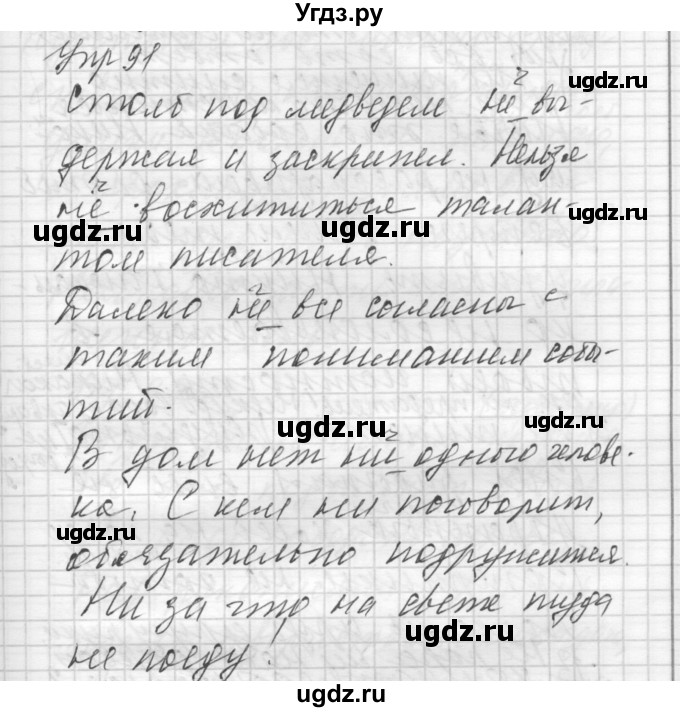 Угдз.ру
Упр 91
Столб под медведем не вы-
держал и заскрипел. Нельзя
не восхититься талан-
том писателя.
Далеко не все согласны с
таким пониманием собы-
тий.
В дом нет ни одного челове-
ка. С кем ни поговорит,
обязательно подружится.
Ни за что на свете туда
не поеду!
ugdz.ru
ugdz.ru
ugdz.ru
ugdz.ru
ugdz.ru
ugdz.ru
ugdz.ru
ugdz.ru
ugdz.ru
ugdz.ru
ugdz.ru
ugdz.ru